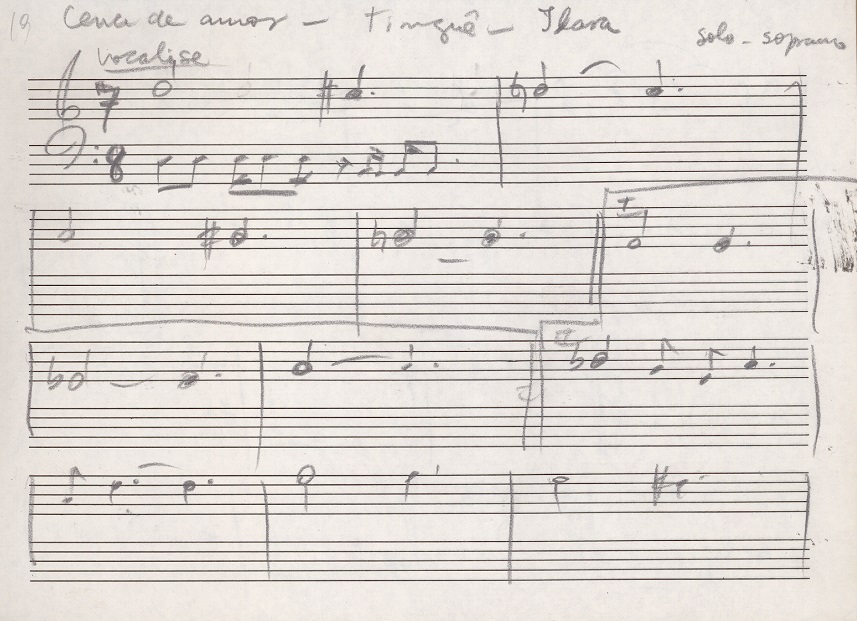 19 Cena de amor – Tinguê – Ilara
solo - soprano
vocalise
7
8
I